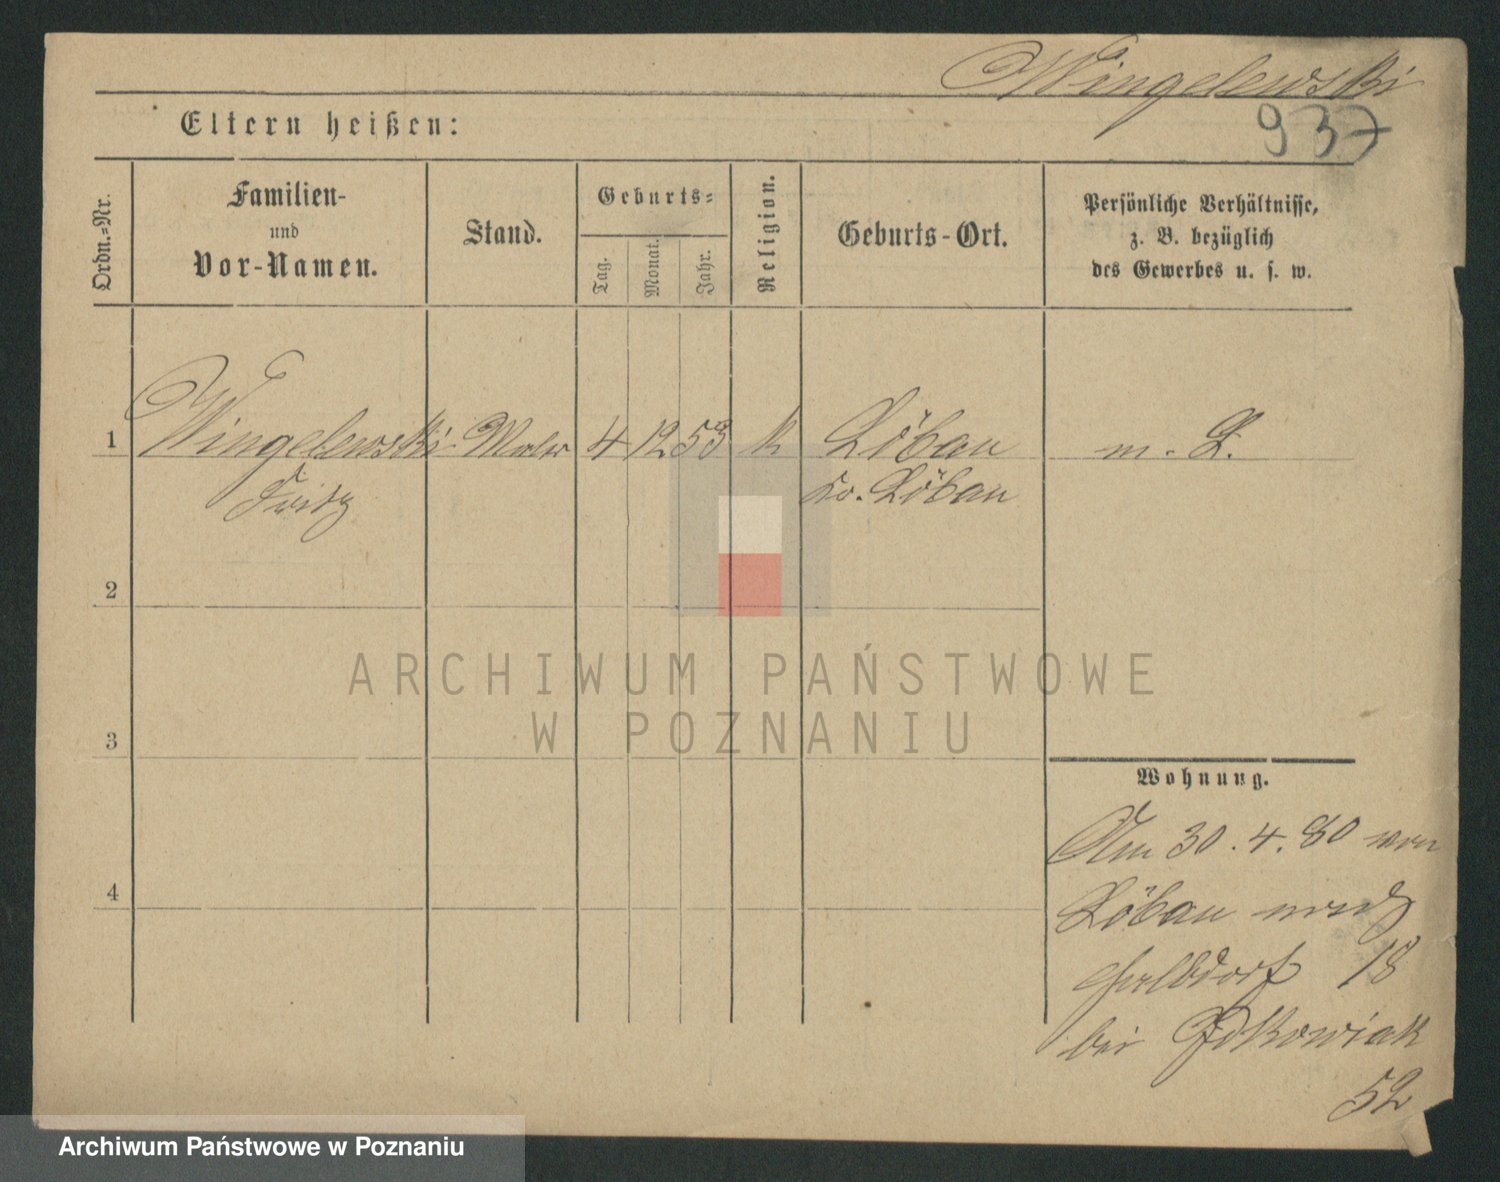 Wingelewski
937
Eltern heißen:
Ordn.-Nr.
Familien-
und
Vor-Namen.
Stand.
Geburts-
Tag.
Monat.
Jahr.
Religion.
Geburts-Ort.
Persönliche Verhältnisse,
z. B. bezüglich
des Gewerbes u. s. w.
1 Wingelewski Maler 4 12 53 k Löbau m. L.
Fritz Kr. Löbau
2
3
4
ARCHIWUM PAŃSTWOWE
W POZNANIU
Wohnung.
Am 30.4.80 von
Löbau nach
Halbdorf 18
bei
52
Archiwum Państwowe w Poznaniu